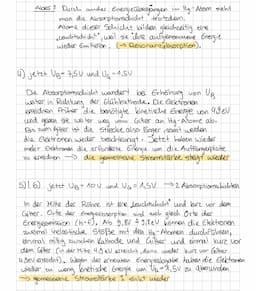 Durch andere Energieübergänge im Hg-Atom sieht
man die Absorptionsschicht trotzdem.
Atome dieser Schicht bilden gleichzeitig eine
"Leuchtschicht", weil sie ihre aufgenommene Energie
wieder emittieren. (→ Resonanzabsorption).
4) jetzt UB = 7,5V und UG = 1,5V
Die Absorptionsschicht wandert bei Erhöhung von UB
weiter in Richtung der Glühkathode. Die Elektronen
erreichen früher die benötigte kinetische Energie von 4,9eV
und geben sie weiter weg vom Gitter an Hg-Atome ab.
Bis zum Gitter ist die Strecke also länger somit werden
die Elektronen wieder beschleunigt. Jetzt haben wieder
mehr Elektronen die Energie um die Auffängerplatte
zu erreichen → die gemessene Stromstärke steigt wieder
5) jetzt UB = 10V und UG = 1,5V → 2 Absorptionsschichten
In der Mitte der Röhre ist eine "Leuchtschicht" und kurz vor dem
Gitter. Orte der Energieabsorption sind auch gleich Orte der
Energieemission. können die Elektronen
zweimal unelastische Stöße mit den Hg-Atomen durchführen,
einmal mittig zwischen Kathode und Gitter und einmal kurz vor
dem Gitter
Wegen der erneuten Energieabgabe haben die Elektronen
wieder zu wenig kinetische Energie um UG = 1,5V zu überwinden
→ gemessene Stromstärke I sinkt wieder